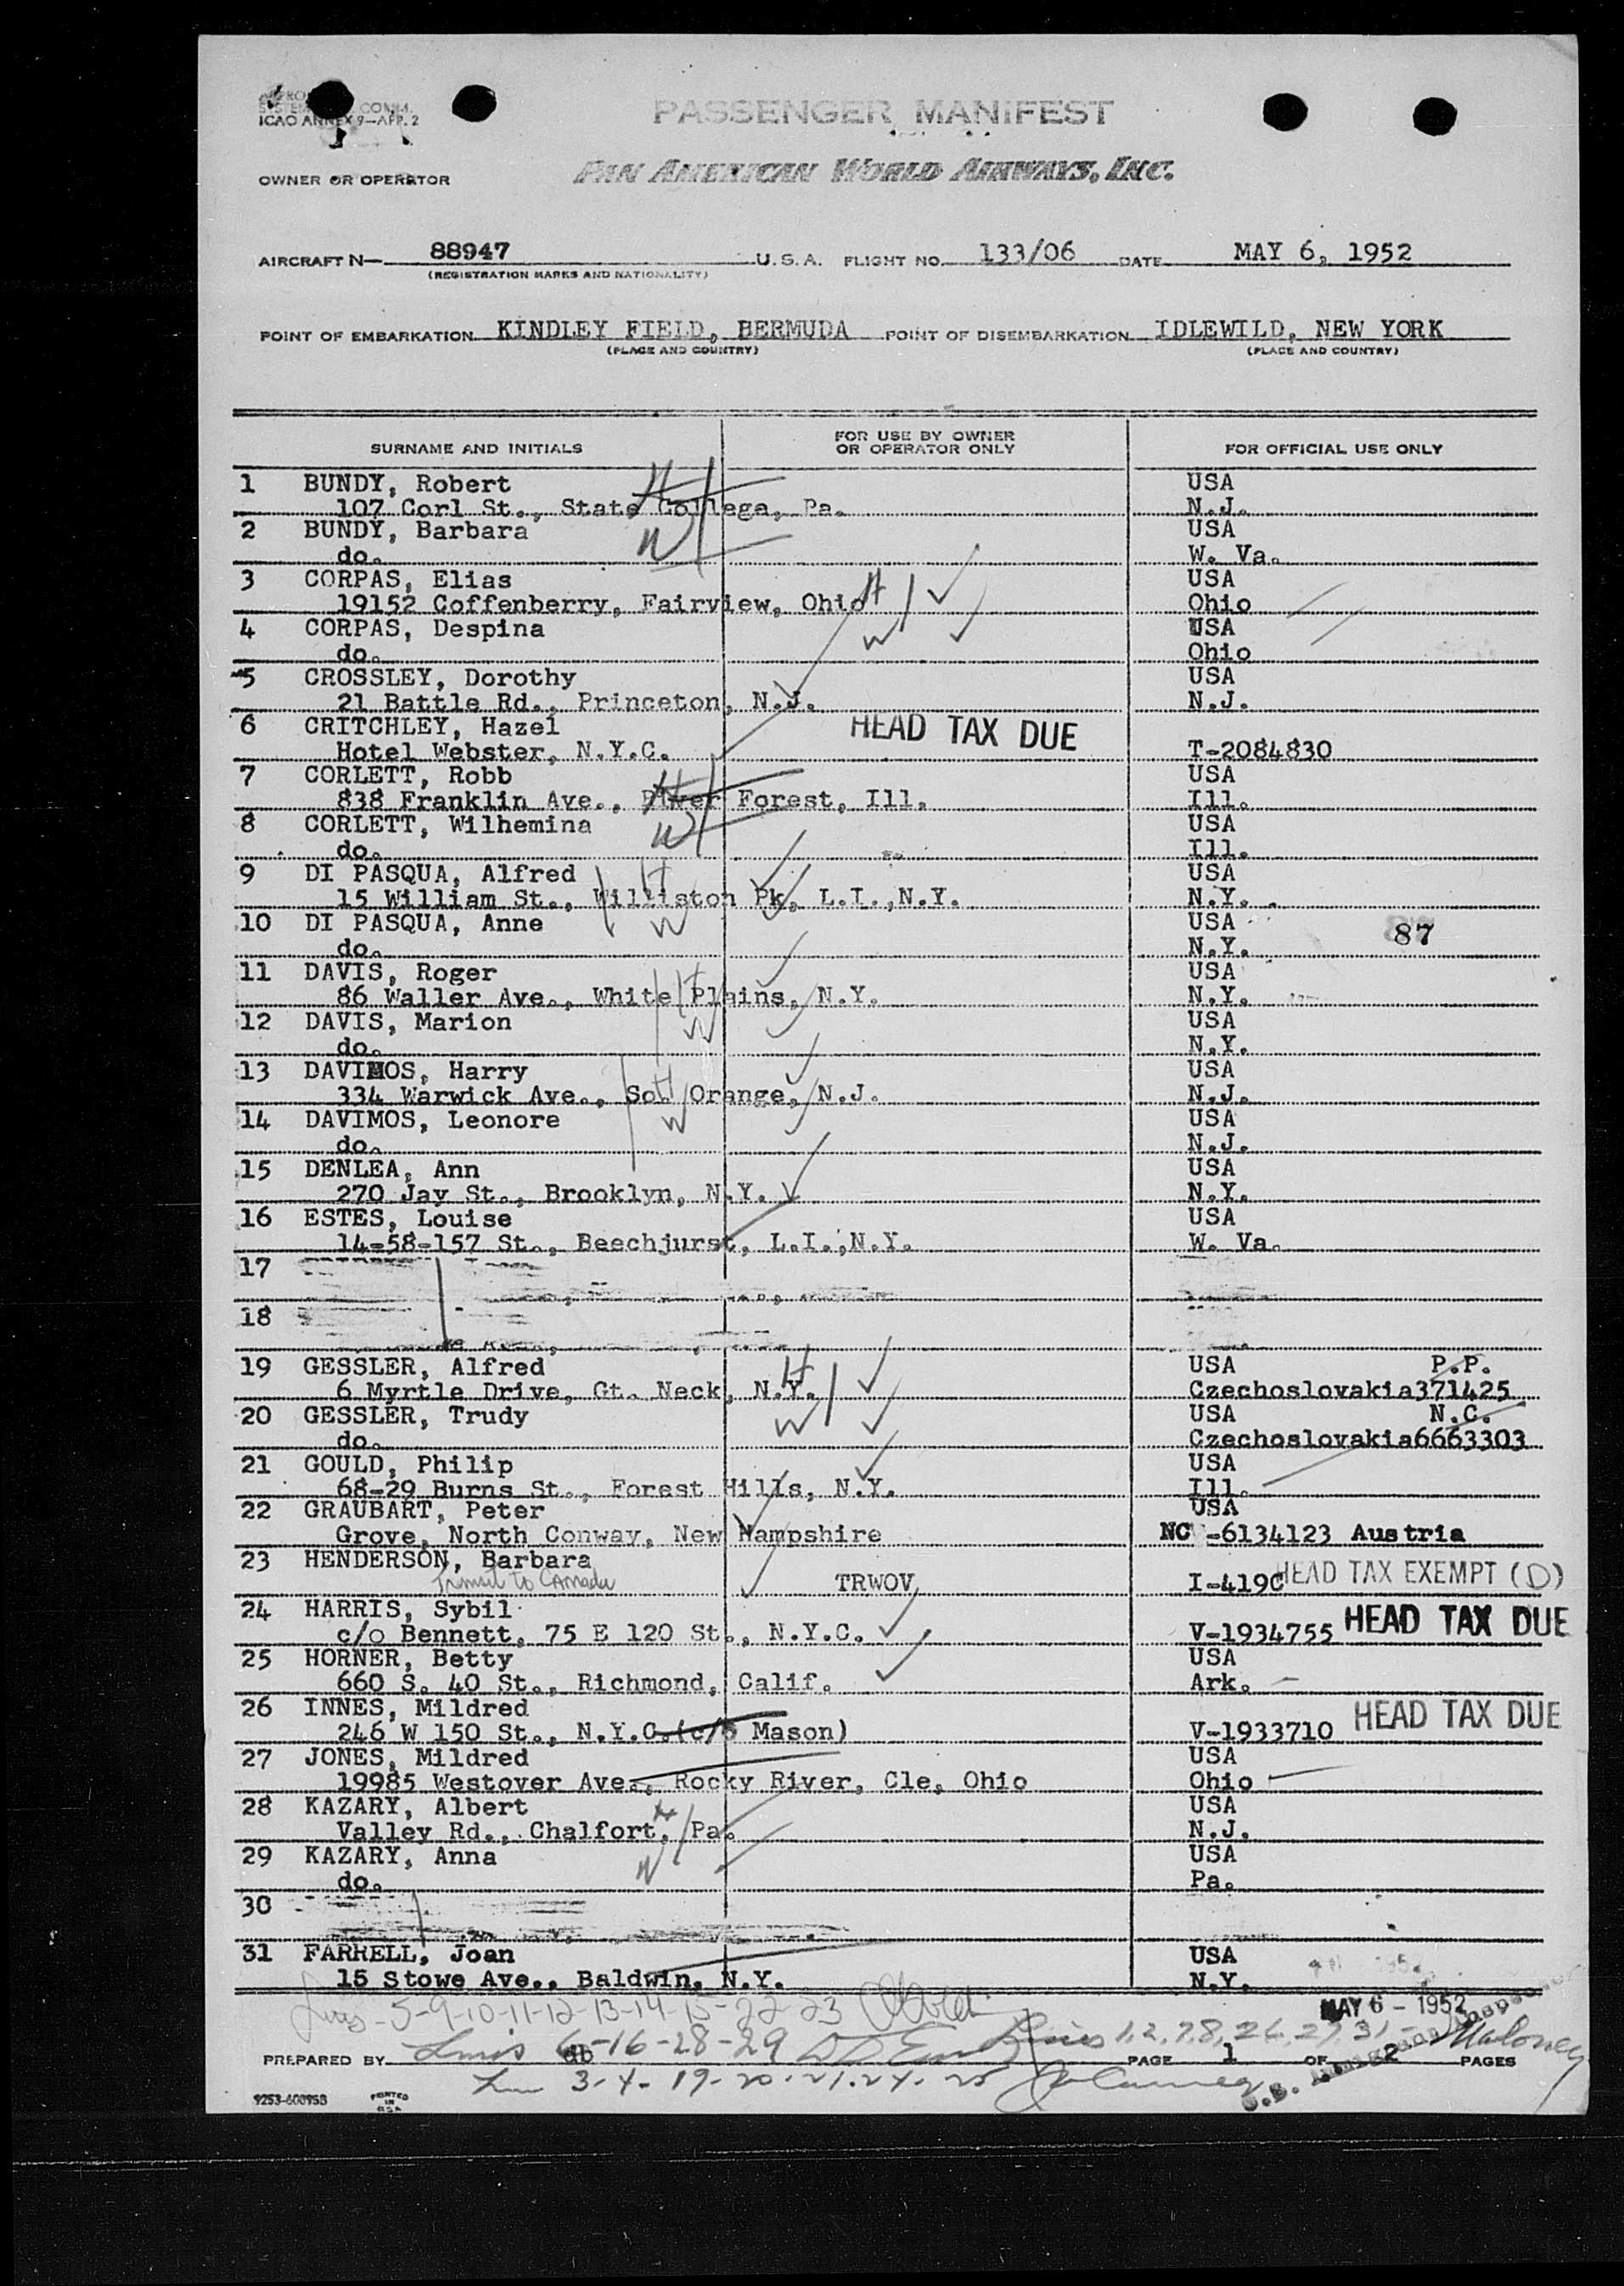 COMM.
ICAO ANNEX 9—APP. 2
PASSENGER MANIFEST
OWNER OR OPERATOR
PAN AMERICAN WORLD AIRWAYS, INC.
AIRCRAFT N— 88947 U.S.A. FLIGHT NO. 133/06 DATE MAY 6, 1952
(REGISTRATION MARKS AND NATIONALITY)
POINT OF EMBARKATION KINDLEY FIELD, BERMUDA POINT OF DISEMBARKATION IDLEWILD, NEW YORK
(PLACE AND COUNTRY) (PLACE AND COUNTRY)
SURNAME AND INITIALS FOR USE BY OWNER OR OPERATOR ONLY FOR OFFICIAL USE ONLY
1 BUNDY, Robert H USA
107 Corl St., State College, Pa. N.J.
2 BUNDY, Barbara W USA
do. W. Va.
3 CORPAS, Elias USA
19152 Coffenberry, Fairview, Ohio H Ohio
4 CORPAS, Despina W USA
do. Ohio
5 CROSSLEY, Dorothy USA
21 Battle Rd., Princeton, N.J. N.J.
6 CRITCHLEY, Hazel HEAD TAX DUE
Hotel Webster, N.Y.C. T-2084830
7 CORLETT, Robb H USA
838 Franklin Ave., River Forest, Ill. Ill.
8 CORLETT, Wilhemina W USA
do. Ill.
9 DI PASQUA, Alfred H USA
15 William St., Williston Pk, L.I.,N.Y. N.Y.
10 DI PASQUA, Anne W USA 87
do. N.Y.
11 DAVIS, Roger H USA
86 Waller Ave., White Plains, N.Y. N.Y.
12 DAVIS, Marion W USA
do. N.Y.
13 DAVIMOS, Harry H USA
334 Warwick Ave., So. Orange, N.J. N.J.
14 DAVIMOS, Leonore W USA
do. N.J.
15 DENLEA, Ann USA
270 Jay St., Brooklyn, N.Y. N.Y.
16 ESTES, Louise USA
14-58-157 St., Beechjurst, L.I.,N.Y. W. Va.
17
18
19 GESSLER, Alfred H USA P.P.
6 Myrtle Drive, Gt. Neck, N.Y. Czechoslovakia371425
20 GESSLER, Trudy W USA N.C.
do. Czechoslovakia6663303
21 GOULD, Philip USA
68-29 Burns St., Forest Hills, N.Y. Ill.
22 GRAUBART, Peter USA
Grove, North Conway, New Hampshire NC -6134123 Austria
23 HENDERSON, Barbara
Transit to Canada TRWOV I-419C HEAD TAX EXEMPT (D)
24 HARRIS, Sybil
c/o Bennett, 75 E 120 St., N.Y.C. V-1934755 HEAD TAX DUE
25 HORNER, Betty USA
660 S. 40 St., Richmond, Calif. Ark.
26 INNES, Mildred
246 W 150 St., N.Y.C.(c/o Mason) V-1933710 HEAD TAX DUE
27 JONES, Mildred USA
19985 Westover Ave., Rocky River, Cle, Ohio Ohio
28 KAZARY, Albert H USA
Valley Rd., Chalfort, Pa. N.J.
29 KAZARY, Anna W USA
do. Pa.
30
31 FARRELL, Joan USA
15 Stowe Ave., Baldwin, N.Y. N.Y.
Lines - 5-9-10-11-12-13-14-15-22-23
MAY 6 - 1952
Lines 6-16-28-29 Lines 1,2,7,8,26,27,31- Maloney
PREPARED BY db PAGE 1 OF 2 PAGES
3-4-19-20-21-24-25
U.S. Immigrant Inspector
9253-60095B PRINTED IN U.S.A.